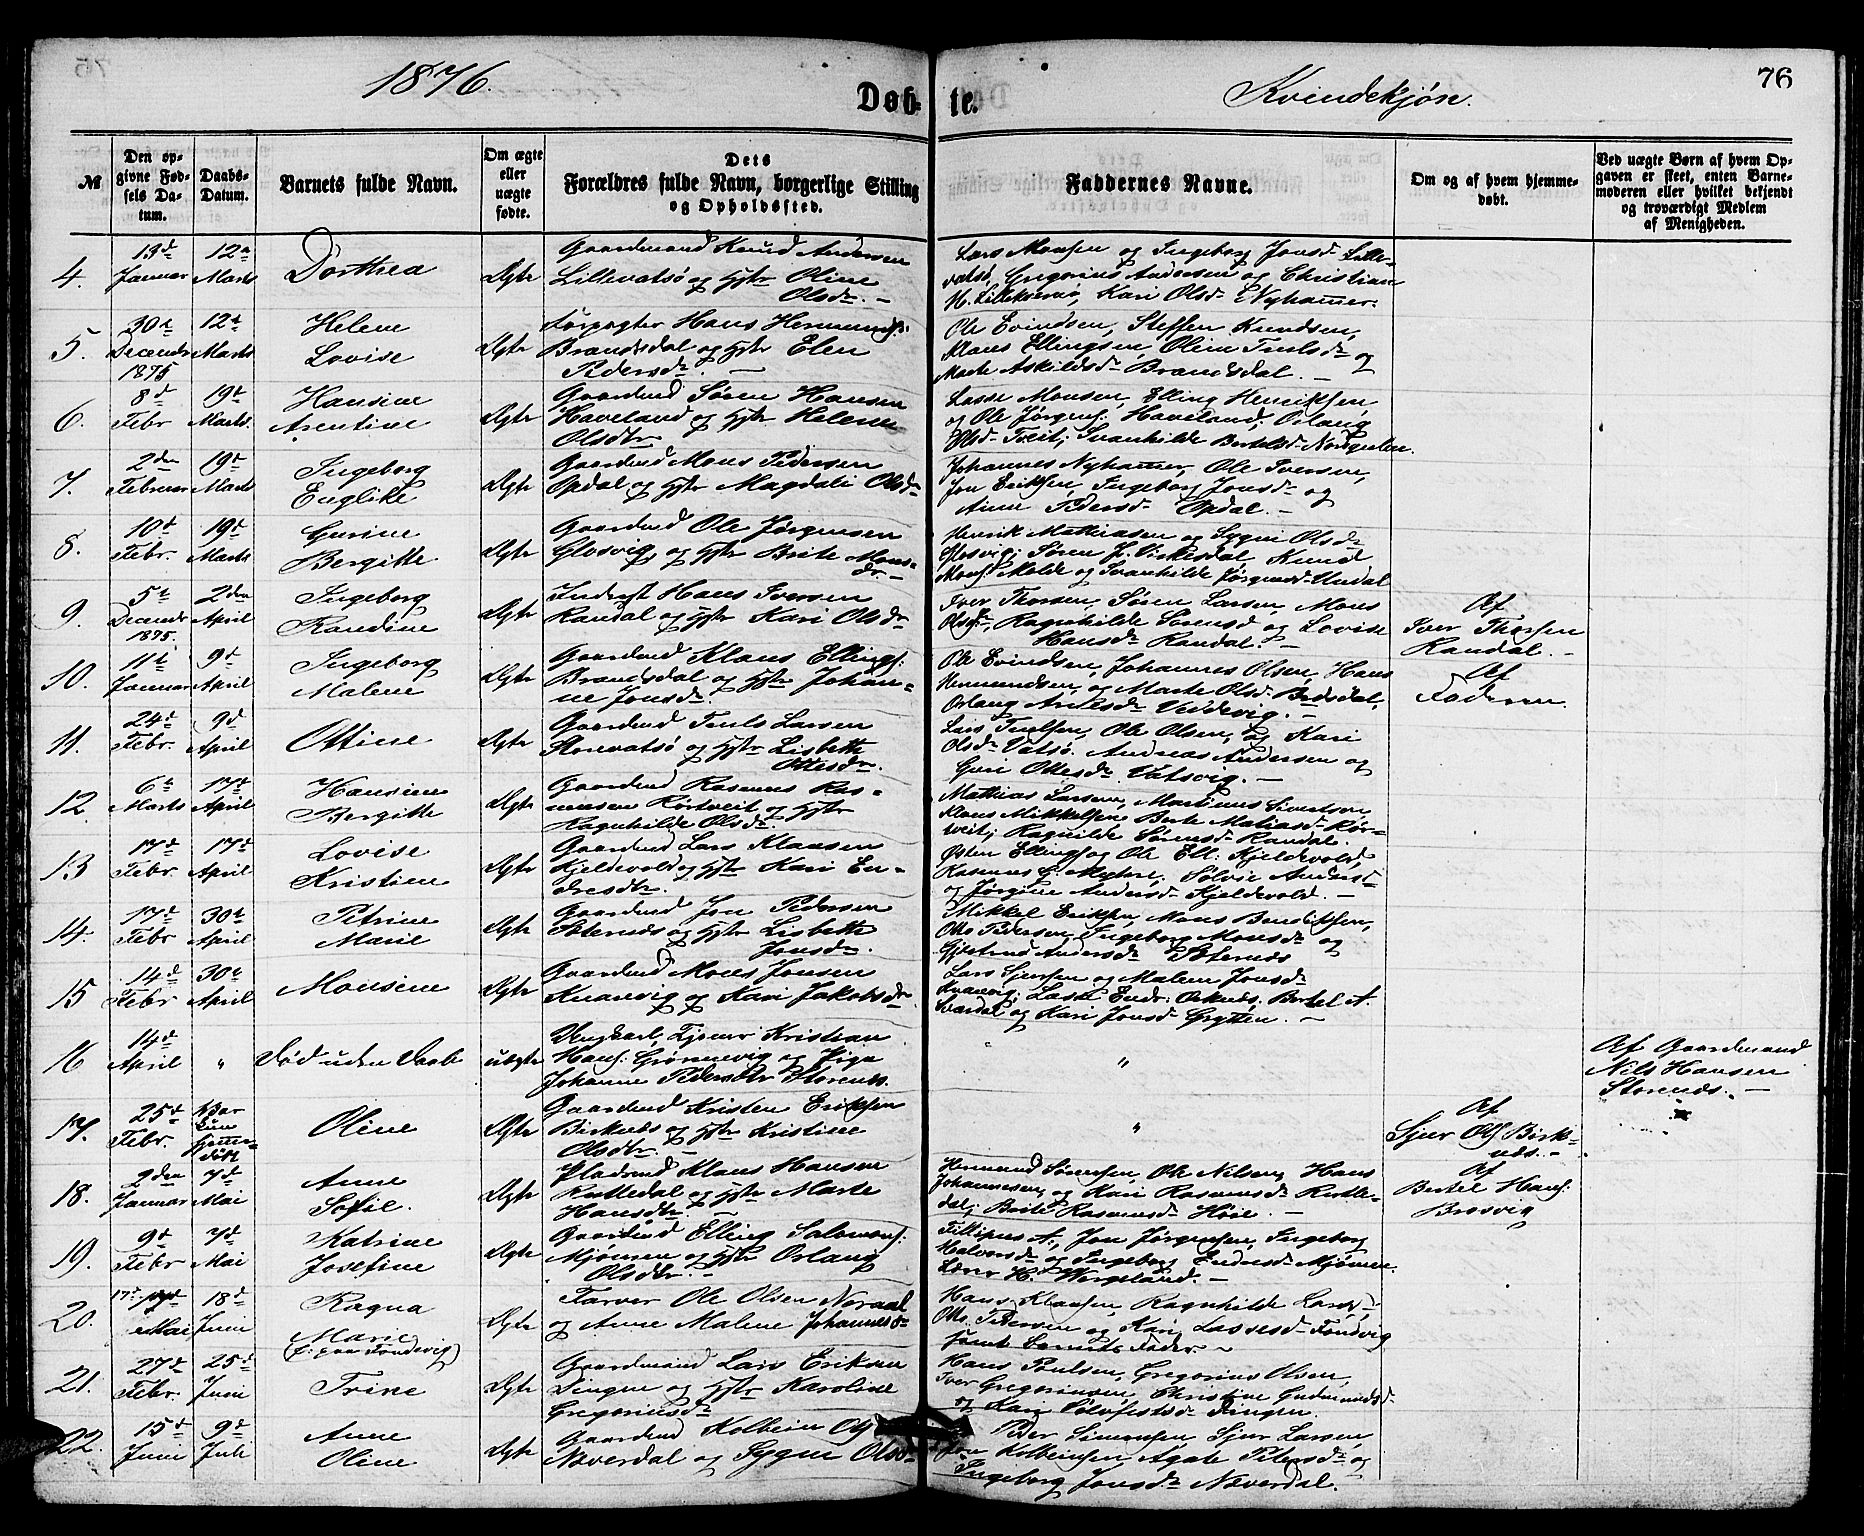 1876.
Døb-
te.
Kvindekjøn.
76
№
Den op-
givne Fød-
sels Da-
tum.
Daabs-
Datum.
Barnets fulde Navn.
Om ægte
eller
uægte
fødte.
Dets
Forældres fulde Navn, borgerlige Stilling
og Opholdssted.
Faddernes Navne.
Om og af hvem hjemme-
døbt.
Ved uægte Børn af hvem Op-
gaven er skeet, enten Barne-
moderen eller hvilket bekjendt
og troværdigt Medlem
af Menigheden.
4.
13d
Januar
12te
Marts
Dorthea
Ægte
Gaardmand Knud Andersen
Lillevatsø og Hstr Oline
Olsdr. -
Lars Monsen og Ingeborg Jonsd. Lille-
vatsø, Gregorius Andersen og Christian
H. Lillekverno, Kari Olsdr Nyhamer.
5.
30te
Decembr
1875
12te
Marts
Helene
Lovise
Ægte
Forpagter Hans Hermunds:
Brandsdal og Hstr Elen
Pedersdr. -
Ole Evindsen, Steffen Knudsen,
Klaus Ellingsen, Oline Truls dr og
Marte Askildsdr Brandsdal. -
6.
8d
Febr
19de
Marts
Hansine
Arentine
Ægte
Gaardmd Søren Hansen
Haveland og Hstr Helene
Olsdtr
Lasse Monsen, Elling Henriksen
og Ole Jørgens: Haveland, Orlaug
Olsdr Tveit, Svanhilde Bertelsdr Nordgulen.
7.
2den
Februar
19de
Marts
Ingeborg
Englike
Ægte
Gaardmd Mons Pedersen
Opdal og Hstr Magdali Olsdr
Johannes Nyhamer, Ole Iversen,
Jon Eriksen, Ingeborg Jonsdr og
Anne Pedersdr Opdal. -
8.
10d
Febr.
19d
Marts
Gurine
Bergitte
Ægte
Gaardmd Ole Jørgensen
Glosvig og Hstr Brite Mons-
dr. -
Henrik Mathiasen og Sygni Olsdr
Glosvig, Søren J. Virkesdal, Knud
Mons: Molde og Svanhilde Jørgensdr Undal
9.
5te
Decembr
1875.
2den
April
Ingeborg
Randine
Ægte
Inderst Hans Iversen
Randal og Hstr Kari Olsdr
Iver Thorsen, Søren Larsen, Mons
Ols:, Ragnhilde Sørensd og Lovise
Hansdr Randal. -
Af
Iver Thorsen
Randal. -
10.
11te
Januar
9de
April
Ingeborg
Malene
Ægte
Gaardmd Klaus Ellings:
Brandsdal og Hstr Johan-
ne Jonsdr.
Ole Evindsen, Johannes Olsen, Hans
Hermundsen, og Marte Olsd. Brdsdal,
Orlaug Antesdr Veddevig. -
Af
Faderen
11.
24d
Febr.
9d
April
Ottine
Ægte
Gaardmd Truls Larsen
Storevatsø og Hstr Lisbette
Ottesdr.
Lars Trulsen, Ole Olsen, og Kari
Olsdr Vatsø. Andreas Andersen og
Guri Ottesdr Vatsvig. -
12.
6te
Marts
17de
April
Hansine
Bergitte
Ægte
Gaardmd Rasmus Ras-
musen Rørtveit og Hstr
Ragnhilde Olsdr
Mathias Larsen, Martinus Sivertsen,
Klaus Mikkelsen, Berte Matiasdr Rør-
tveit, Ragnilde Sørensdr Randal.
13
17de
Febr.
17de
April
Lovise
Kristine
Ægte
Gaardmd Lars Klausen
Kjeldevold og Hstr Kari En-
dresdtr.
Østen Ellings og Ole Ell: Kjeldevold,
og Jørgine Andersdr Kjeldevold. -
14.
17de
Febr
30te
April
Petrine
Marie
Ægte
Gaardmd Jon Pedersen
Steenes og Hstr Lisbette
Jonsdr.
Mikkel Eriksen, Mons Bendiktsen,
Otto Pedersen, Ingeborg Monsdr og
Gjertrud Andersdr
15
14de
Febr
30te
April
Monsine
Ægte
Gaardmd Mons Jonsen
Kvanvig og Kari Jakobsdr
Lars Sjursen og Malene Jonsdr
Kvanvig, Lasse Endr:
og Kari Jonsdr Grytten. -
16
14de
April
"
Død uden Daab
uægte
Ungkarl, Tjener Kristian
Hans: Grønnevig og Pige
Johanne Pedersdtr Storenes.
"
Af Gaardmand
Nils Hansen
Storenes. -
17.
25de
Febr.
Var
kun
hjemme-
døbt
Oline
Ægte
Gaardmd Kristen Eriksen
Birknes og Hstr Kristine
Olsdtr. -
"
Af
Sjur Ols Birk-
nes. -
18.
2den
Januar
7de
Mai
Anne
Sofie.
Ægte
Pladsmd Klaus Hansen
Rutledal og Hstr Marte
Hansdtr.
Hermund Sørensen, Ole Nilsen, Hans
Johannesen, og Kari Rasmusdr Rutle-
dal; Brite Rasmusdr Høie. -
Af
Bertel Hans:
Brosvig
19.
9de
Febr
7de
Mai
Katrine
Josefine
Ægte
Gaardmd Elling Salomons:
Mjømen og Hstr Orlaug
Olsdtr. -
Fillipus A., Jon Jørgensen, Ingeborg
Halvorsdr og Ingeborg Endresdr Mjømen.
Lærer H. Wergeland. -
20.
17de
Mai
18de
Juni
Ragna
Marie
(f. paa Fondevig)
Ægte
Farver Ole Olsen Noraal
og Anne Malene Johannesdr
Hans Klausen, Ragnhilde Larsdr
Otto Pedersen og Kari Lassesdr Fondvig
samt Barnets Fader -
21.
27de
Febr.
25de
Juni
Trine
Ægte
Gaardmand Lars Eriksen
Dingen og Hstr Karoline
Gregoriusdr
Hans Poulsen, Gregorius Olsen,
Iver Gregoriussen, Christine Gudmundsd
og Kari Sølfestsdr Dingen.
22.
15de
Juni
9de
Juli
Anne
Oline
Ægte
Gaardmd Kolbein Ols
Nøverdal og Sygni Olsdr
Peder Simonsen, Sjur Larsen,
Jon Kolbeinsen, Agate Petersdr og
Ingeborg Jonsdr Nøverdal.